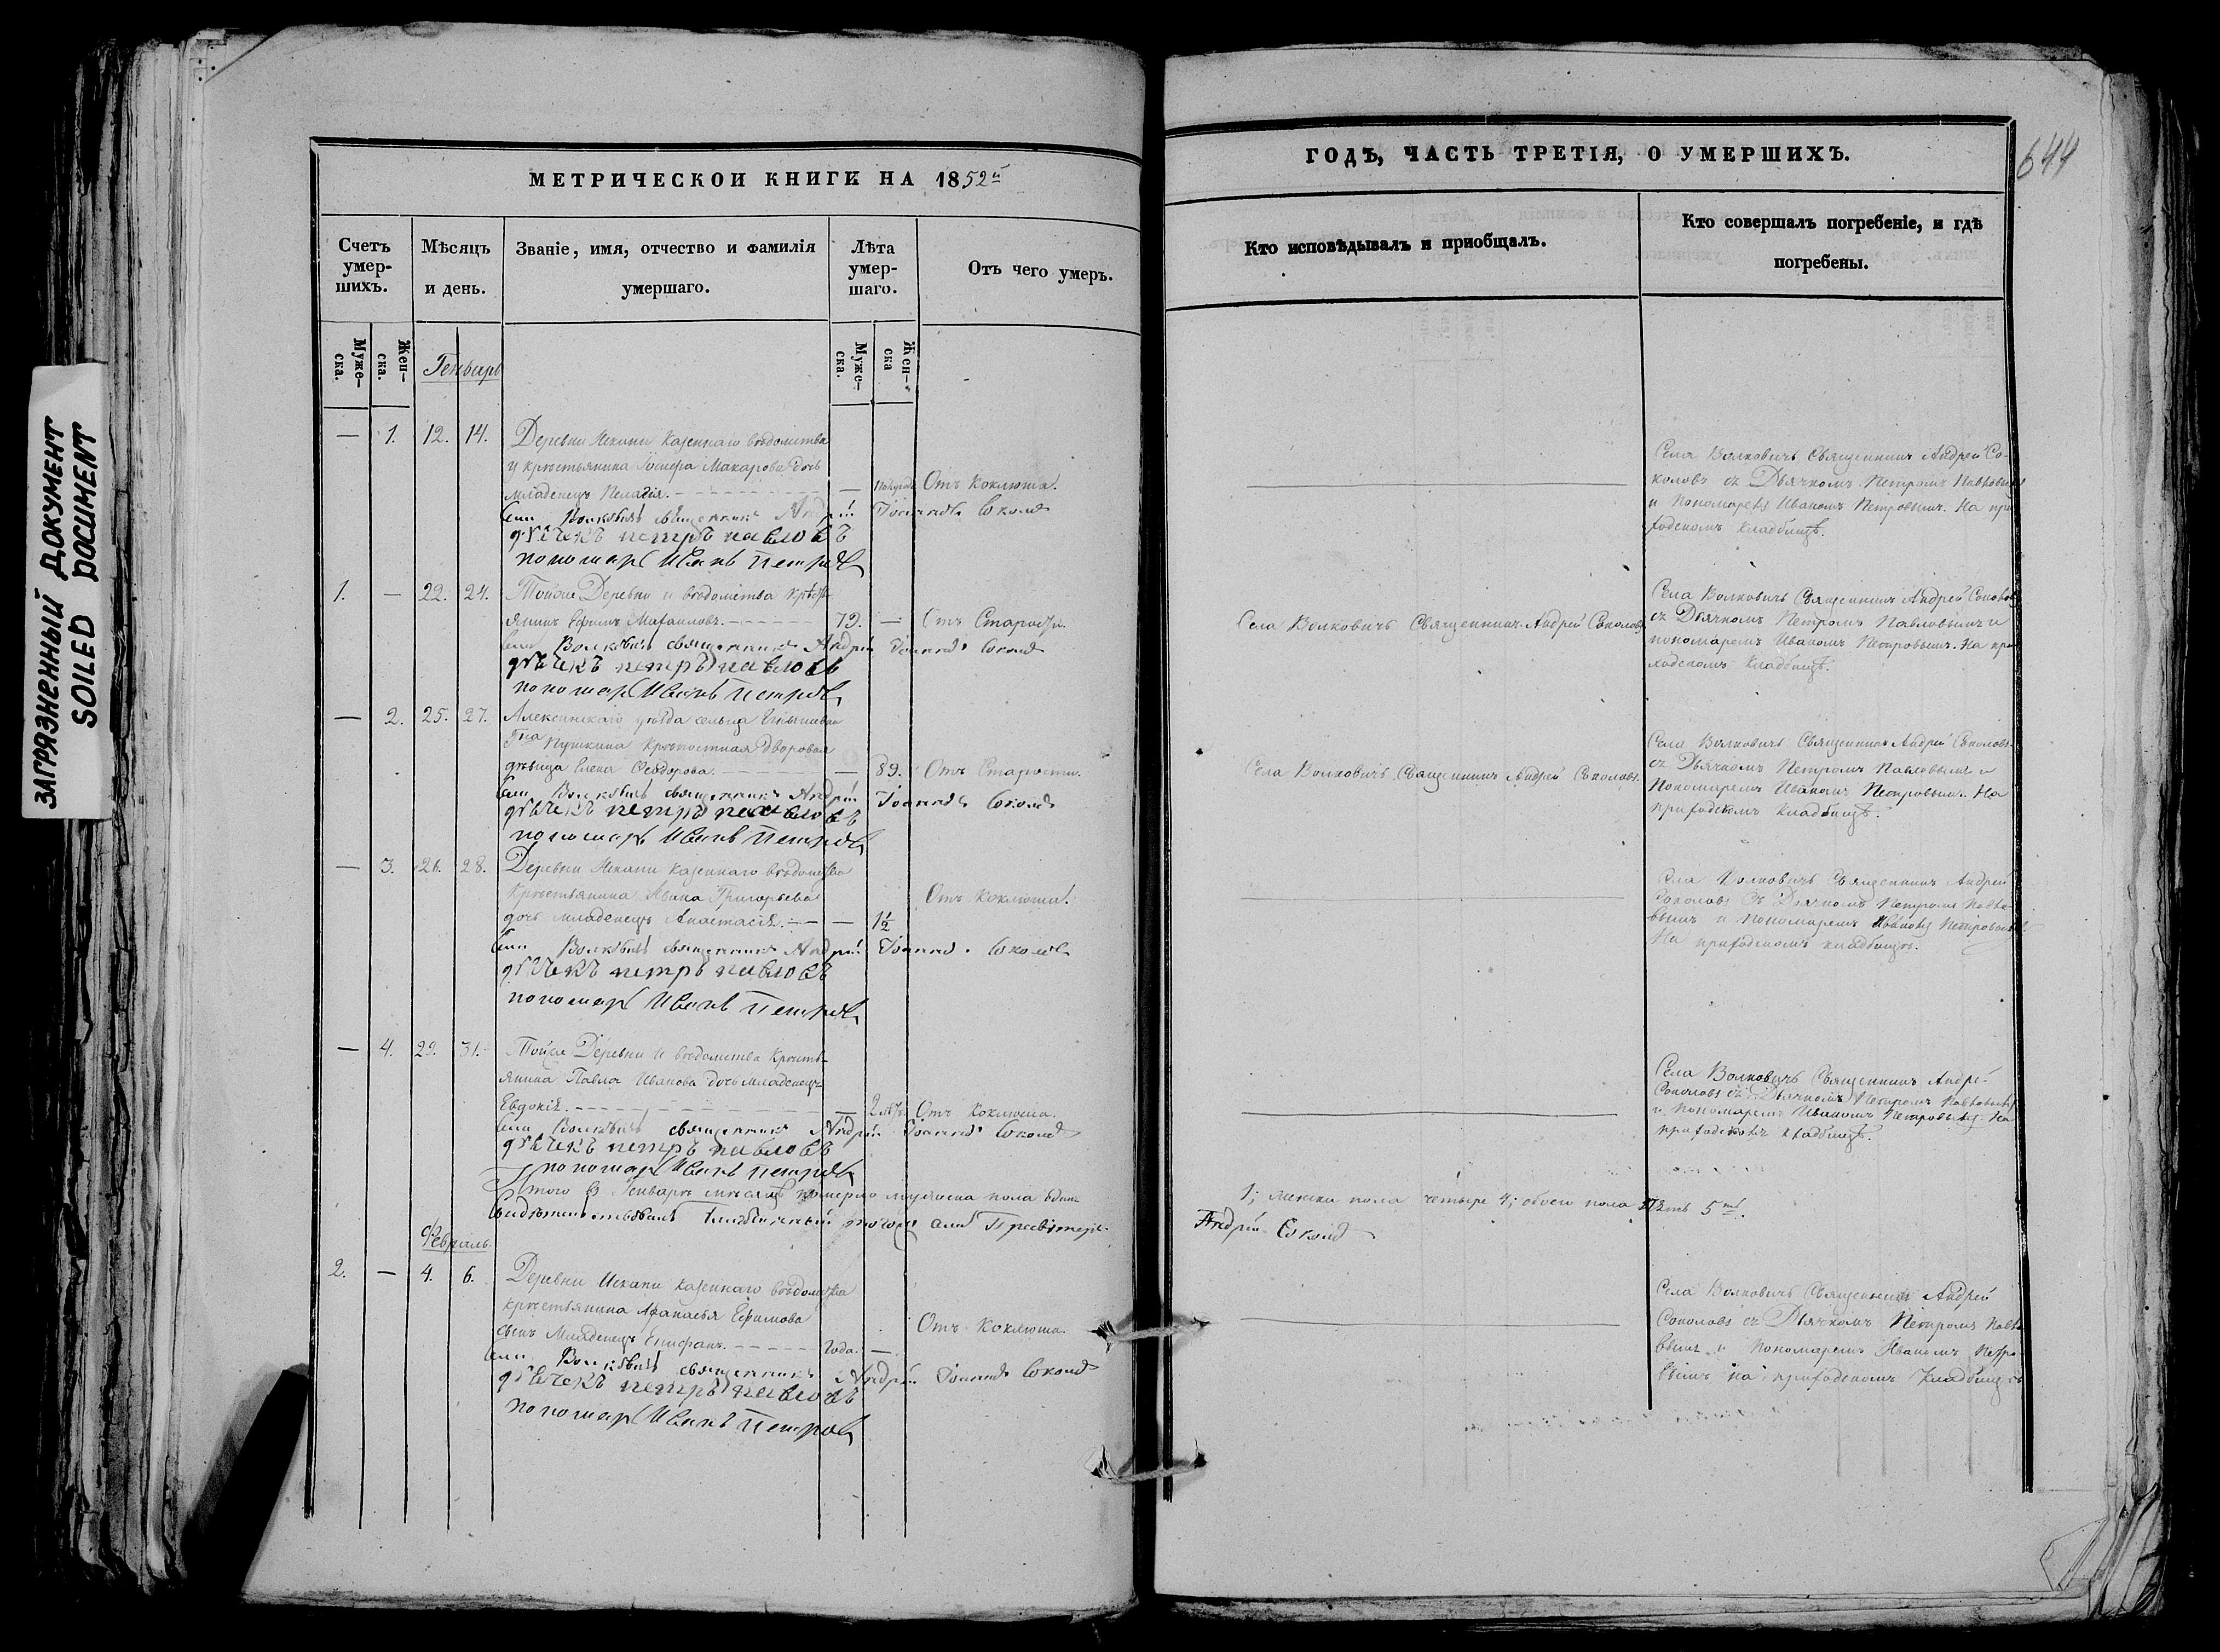 ЗАГРЯЗНЕННЫЙ ДОКУМЕНТ
SOILED DOCUMENT
МЕТРИЧЕСКОИ КНИГИ НА 1852й
Счетъ умер-шихъ.
Мѣсяцъ и день.
Званіе, имя, отчество и фамилія умершаго.
Лѣта умер-шаго.
Отъ чего умеръ.
Муже-ска.
Жен-ска.
Генварь
Муже-ска.
Жен-ска
— 1. 12. 14. Деревни казеннаго вѣдомства
у крестьянина Іосифа Макарова дочь
младенецъ Пелагія. — Полугода Отъ Коклюша.
Села священникъ Андрей Іоанновъ Соколовъ
дьячекъ петръ павловъ
пономарь Иванъ Петровъ
1. — 22. 24. Тойже Деревни и вѣдомства крестья-
янинъ Ефимъ 79. — Отъ Старости.
Села священникъ Андрей Іоанновъ Соколовъ
дьячекъ петръ павловъ
пономарь Иванъ Петровъ
— 2. 25. 27. Алексинскаго уѣзда сельца
Гна Пушкина крѣпостная дворовая
дѣвица Елена Ѳеодорова. — 89. Отъ Старости.
Села священникъ Андрей Іоанновъ Соколовъ
дьячекъ петръ павловъ
пономарь Иванъ Петровъ
— 3. 26. 28. Деревни казеннаго вѣдомства
крестьянина Ивана Григорьева Отъ Коклюша.
дочь младенецъ Анастасія. — 1½
Села священникъ Андрей Іоанновъ Соколовъ
дьячекъ петръ павловъ
пономарь Иванъ Петровъ
— 4. 29. 31. Тойже Деревни и вѣдомства кресть-
янина Павла Иванова дочь младенецъ
Евдокія. — 2 Отъ Коклюша.
Села священникъ Андрей Іоанновъ Соколовъ
дьячекъ петръ павловъ
пономарь Иванъ Петровъ
Итого в Генварѣ мѣсяцѣ померло мужеска пола
Февраль
2. — 4. 6. Деревни казеннаго вѣдомства
крестьянина Афанасья Ефимова
сынъ младенецъ Епифанъ. Года. — Отъ Коклюша.
Села священникъ Андрей Іоанновъ Соколовъ
дьячекъ петръ павловъ
пономарь Иванъ Петровъ
ГОДЪ, ЧАСТЬ ТРЕТІЯ, О УМЕРШИХЪ.
644
Кто исповѣдывалъ и приобщалъ.
Кто совершалъ погребеніе, и гдѣ погребены.
Села Волковичь Священникъ Андрей Со-
коловъ съ Дьячкомъ Петромъ Павловымъ
и Пономаремъ Иваномъ Петровымъ. На при-
ходскомъ кладбищѣ.
Села Волковичь Священникъ Андрей Соколовъ
Села Волковичь Священникъ Андрей Соколовъ
съ Дьячкомъ Петромъ Павловымъ и
пономаремъ Иваномъ Петровымъ. На при-
ходскомъ кладбищѣ.
Села Волковичь Священникъ Андрей Соколовъ.
Села Волковичь Священникъ Андрей Соколовъ
съ Дьячкомъ Петромъ Павловымъ и
Пономаремъ Иваномъ Петровымъ. На
приходскомъ кладбищѣ.
Села Волковичь Священникъ Андрей
Соколовъ съ Дьячкомъ Петромъ Павло-
вымъ и пономаремъ Иваномъ Петровымъ
На приходскомъ кладбищѣ.
Села Волковичь Священникъ Андрей
Соколовъ съ Дьячкомъ Петромъ Павловымъ
и пономаремъ Иваномъ Петровымъ. На
приходскомъ кладбищѣ.
1; женска пола четыре 4; обоего пола пять 5ть.
Андрей Соколовъ
Села Волковичь Священникъ Андрей
Соколовъ съ Дьячкомъ Петромъ Павло-
вымъ и Пономаремъ Иваномъ Петро-
вымъ на приходскомъ кладбищѣ